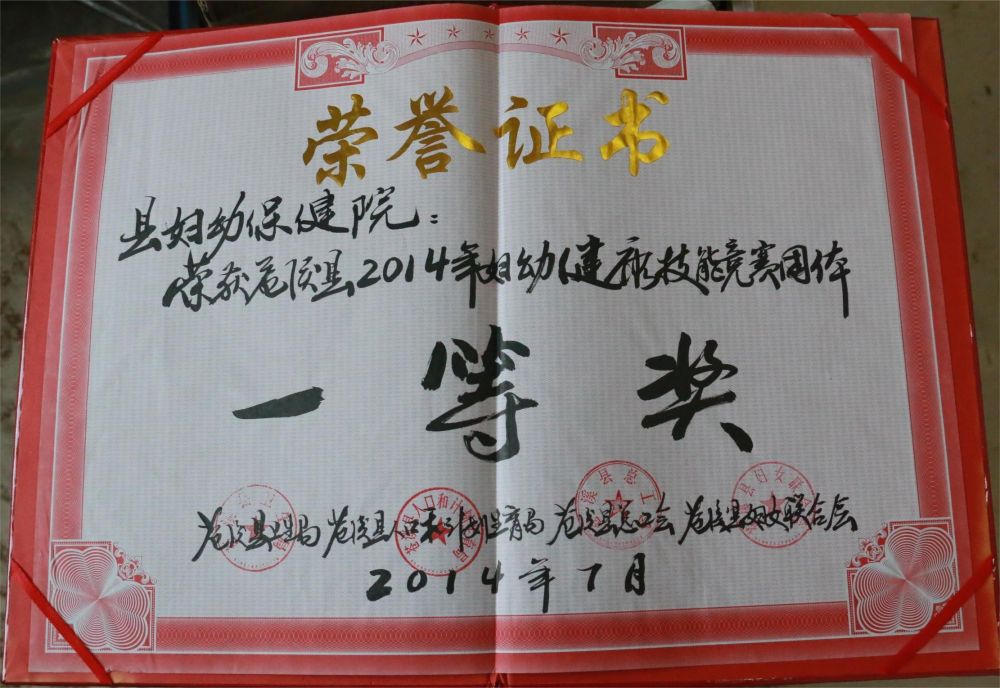 荣誉证书
县妇幼保健院：
荣获苍溪县2014年妇幼健康技能竞赛团体
一等奖
苍溪县卫生局 苍溪县人口和计划生育局 苍溪县总工会 苍溪县妇女联合会
2014年7月